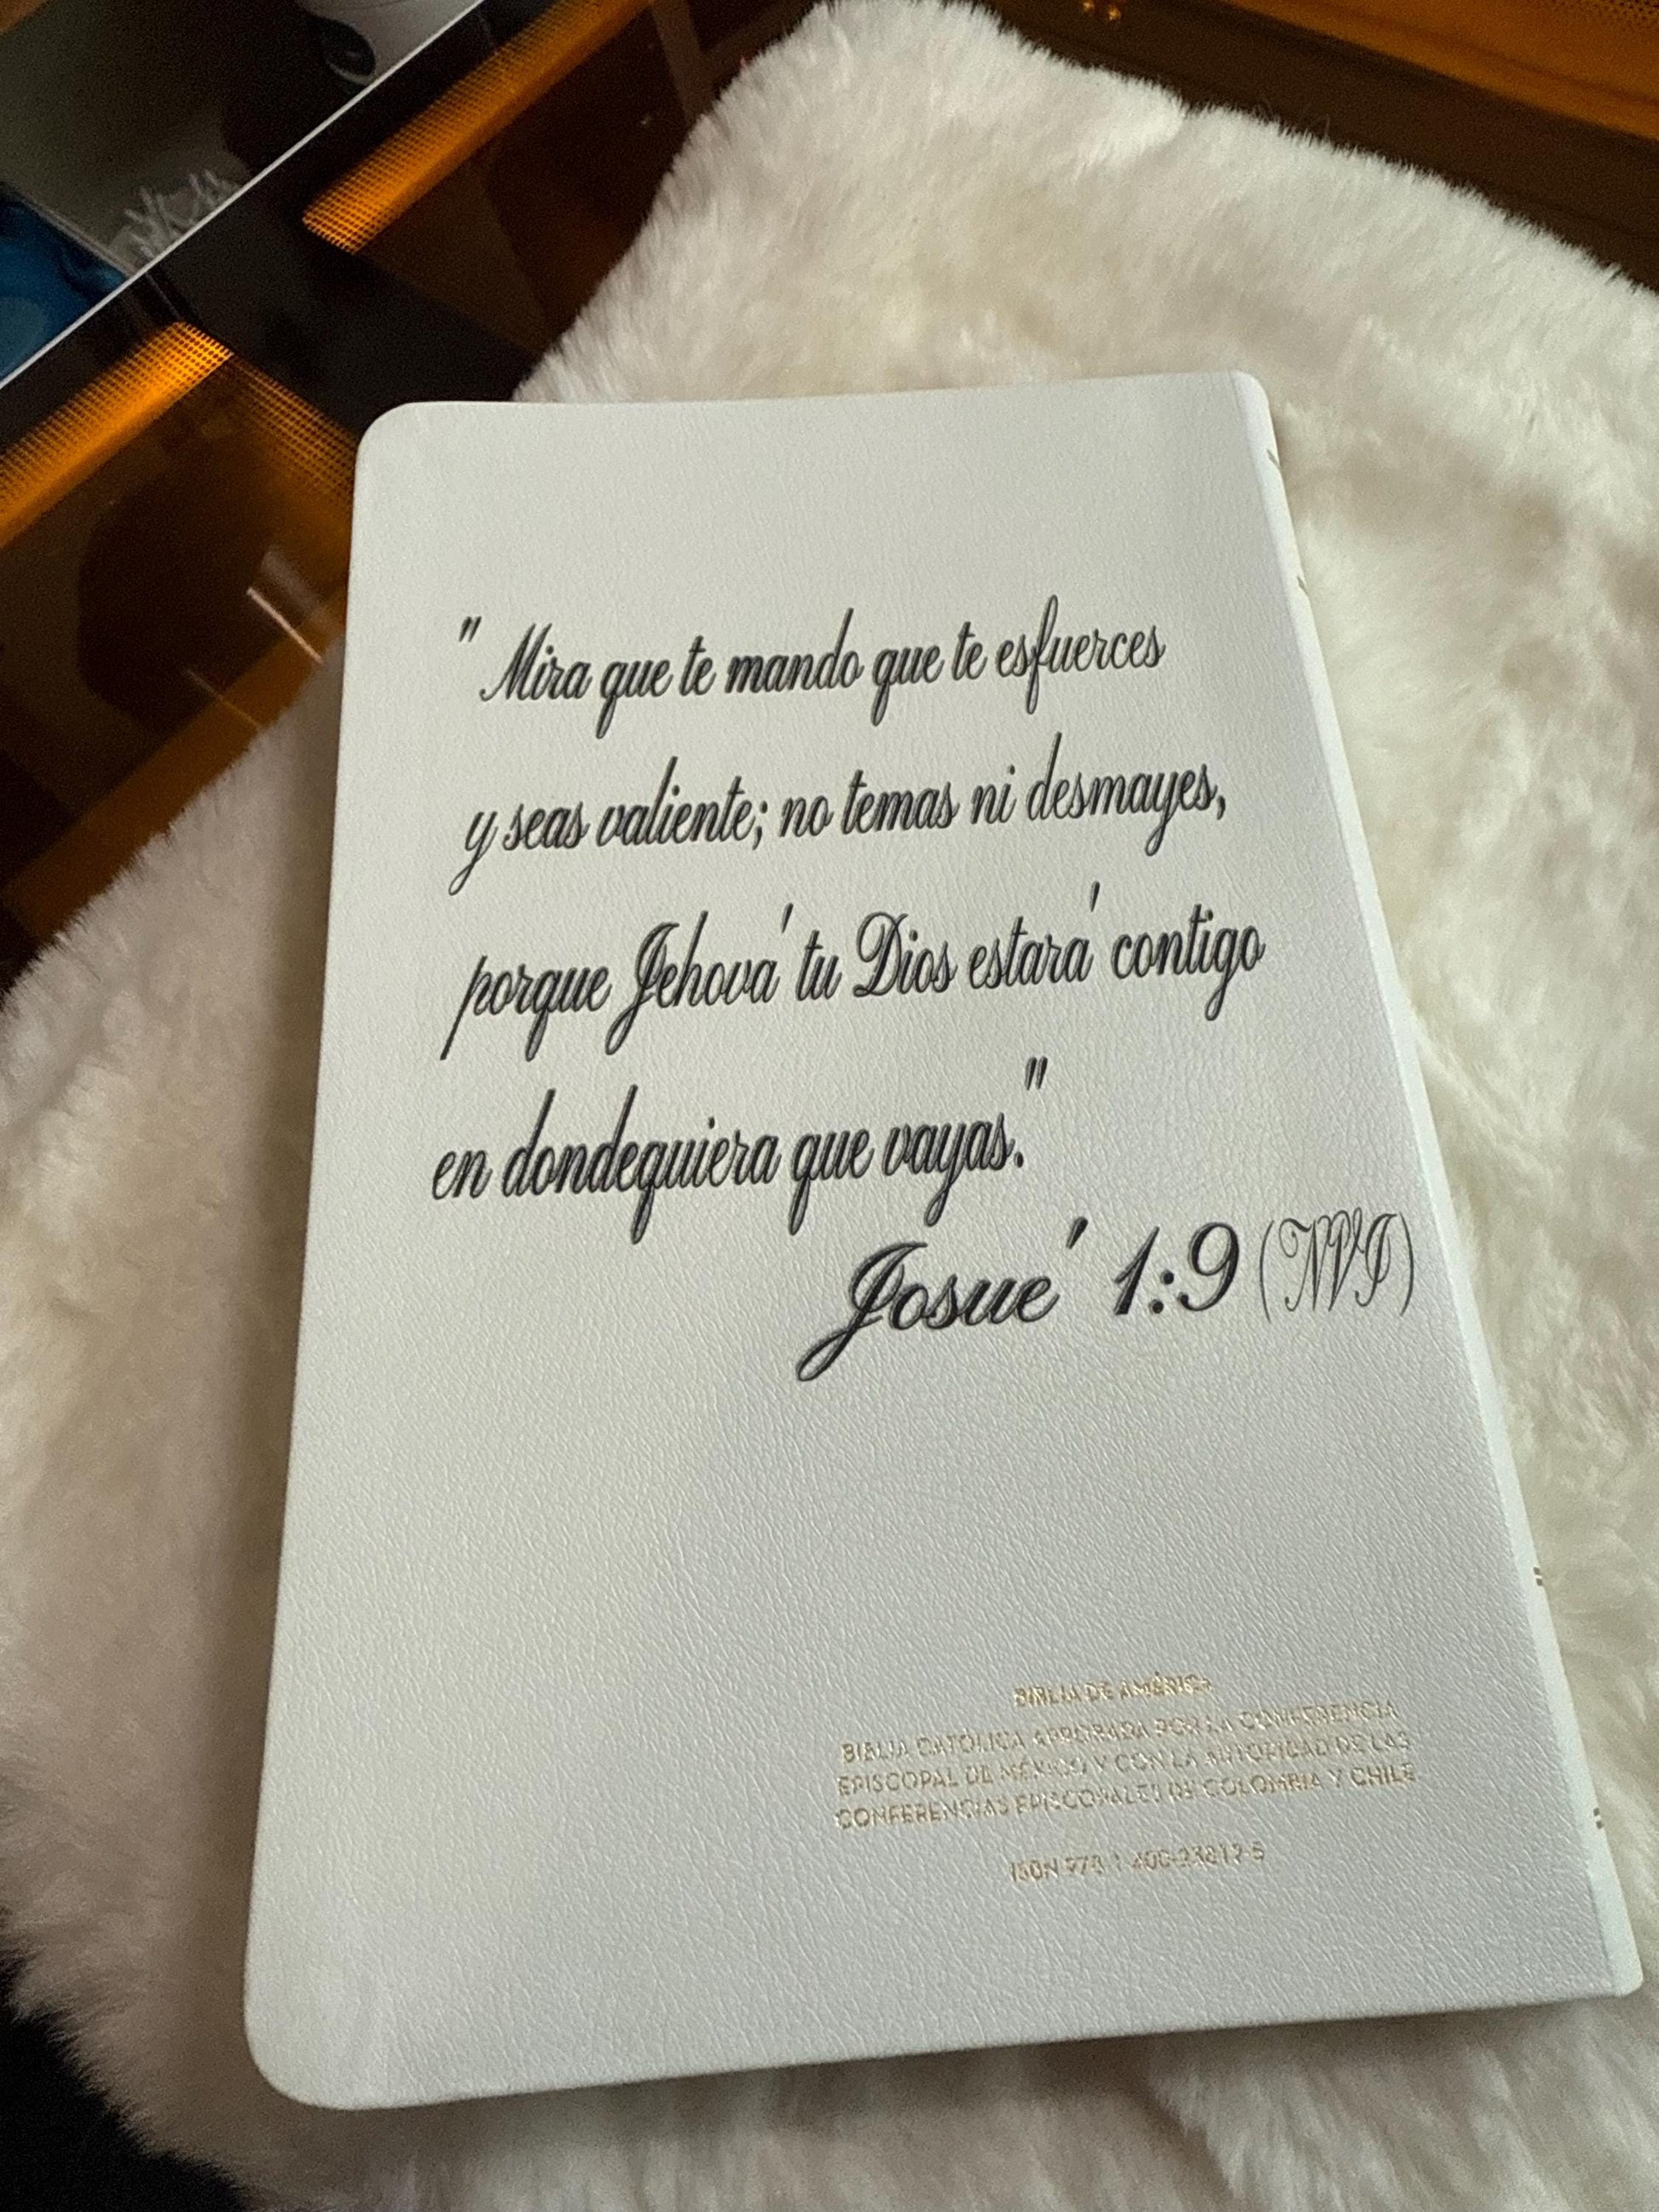 " Mira que te mando que te esfuerces
y seas valiente; no temas ni desmayes,
porque Jehova' tu Dios estara' contigo
en dondequiera que vayas."
Josue' 1:9 (NVI)
BIBLIA DE AMÉRICA
BIBLIA CATÓLICA APROBADA POR LA CONFERENCIA
EPISCOPAL DE MÉXICO Y CON LA AUTORIDAD DE LAS
CONFERENCIAS EPISCOPALES DE COLOMBIA Y CHILE
ISBN 978-1-400-23812-5